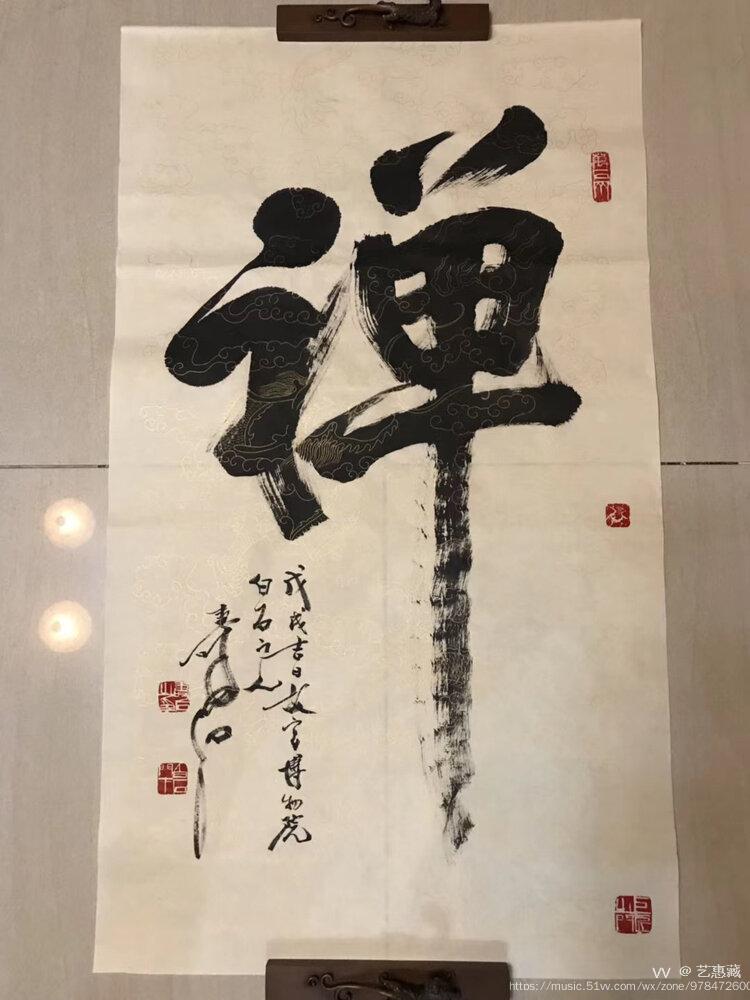 禅
戊戌吉日故宫博物院
白石之人
@ 艺惠藏
https://music.51w.com/wx/zone/978472600